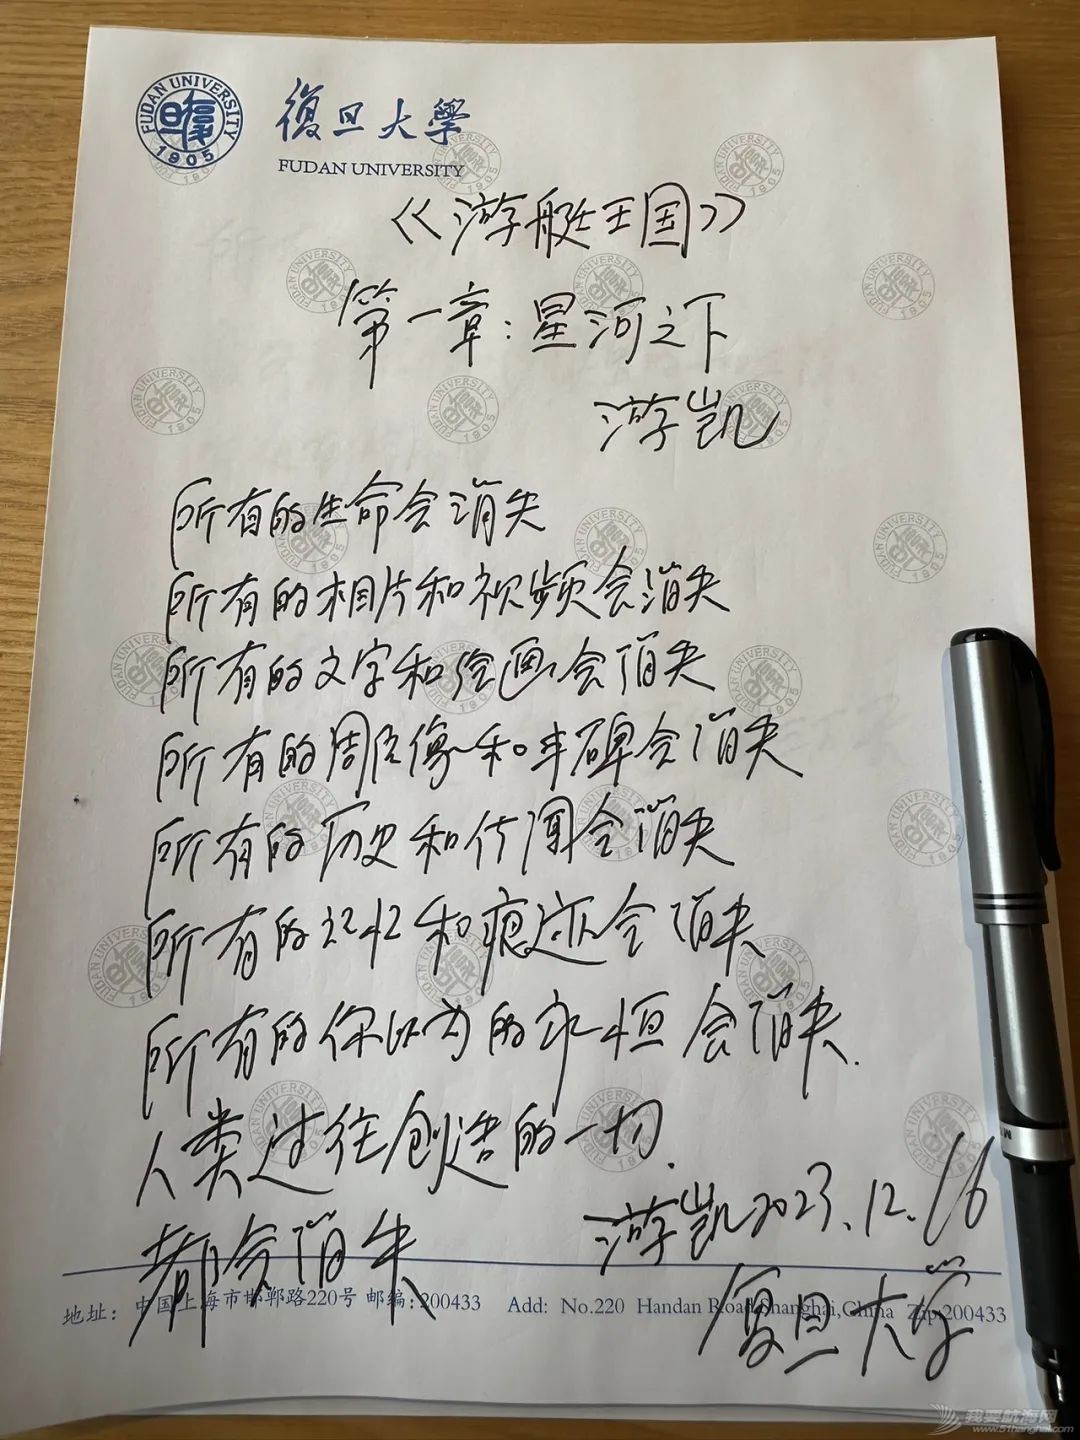 FUDAN UNIVERSITY
1905
復旦大學
FUDAN UNIVERSITY
《游艇王国》
第一章：星河之下
游凯
所有的生命会消失
所有的相片和视频会消失
所有的文字和绘画会消失
所有的周后像和丰碑会消失
所有的历史和传闻会消失
所有的记忆和痕迹会消失
所有的你以为的永恒会消失.
人类过往创造的一切.
都会消失
游凯2023.12.16
复旦大学
地址：中国上海市邯郸路220号 邮编:200433 Add: No.220 Handan Road,Shanghai,China Zip:200433
我要航海网
www.51hanghai.com